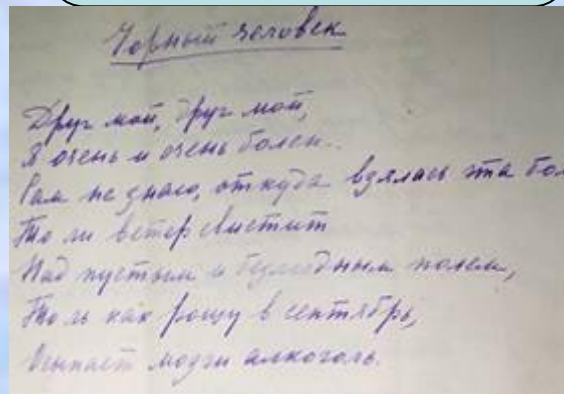 Чорный человек
Друг мой, друг мой,
Я очень и очень болен..
Сам не знаю, откуда взялась эта бол
То ли ветер свистит
Над пустым и безлюдным полем,
То ль как рощу в сентябрь,
Осыпает мозги алкоголь.